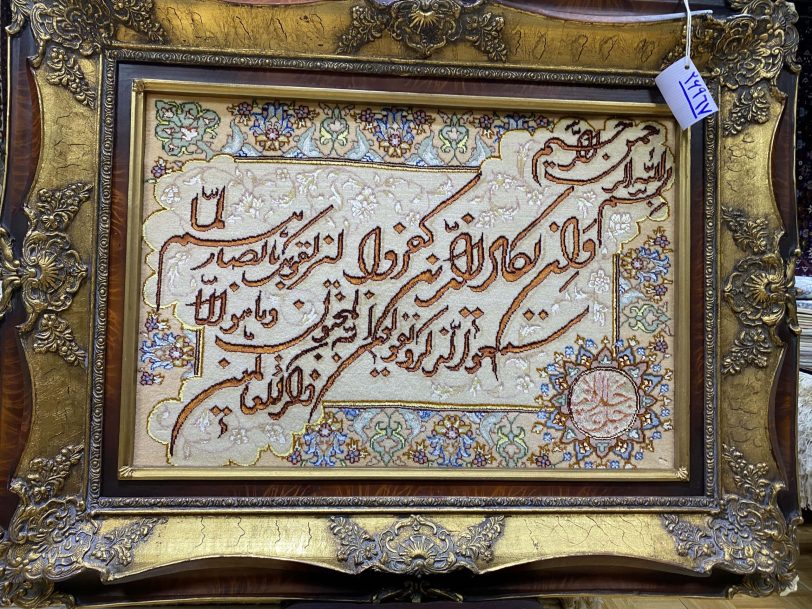 بسم الله الرحمن الرحیم
وان یکاد الذین کفروا لیزلقونک بابصارهم لما
سمعوا الذکر ویقولون انه لمجنون وما هو الا
ذکر للعالمین
۲۹۹۱۷